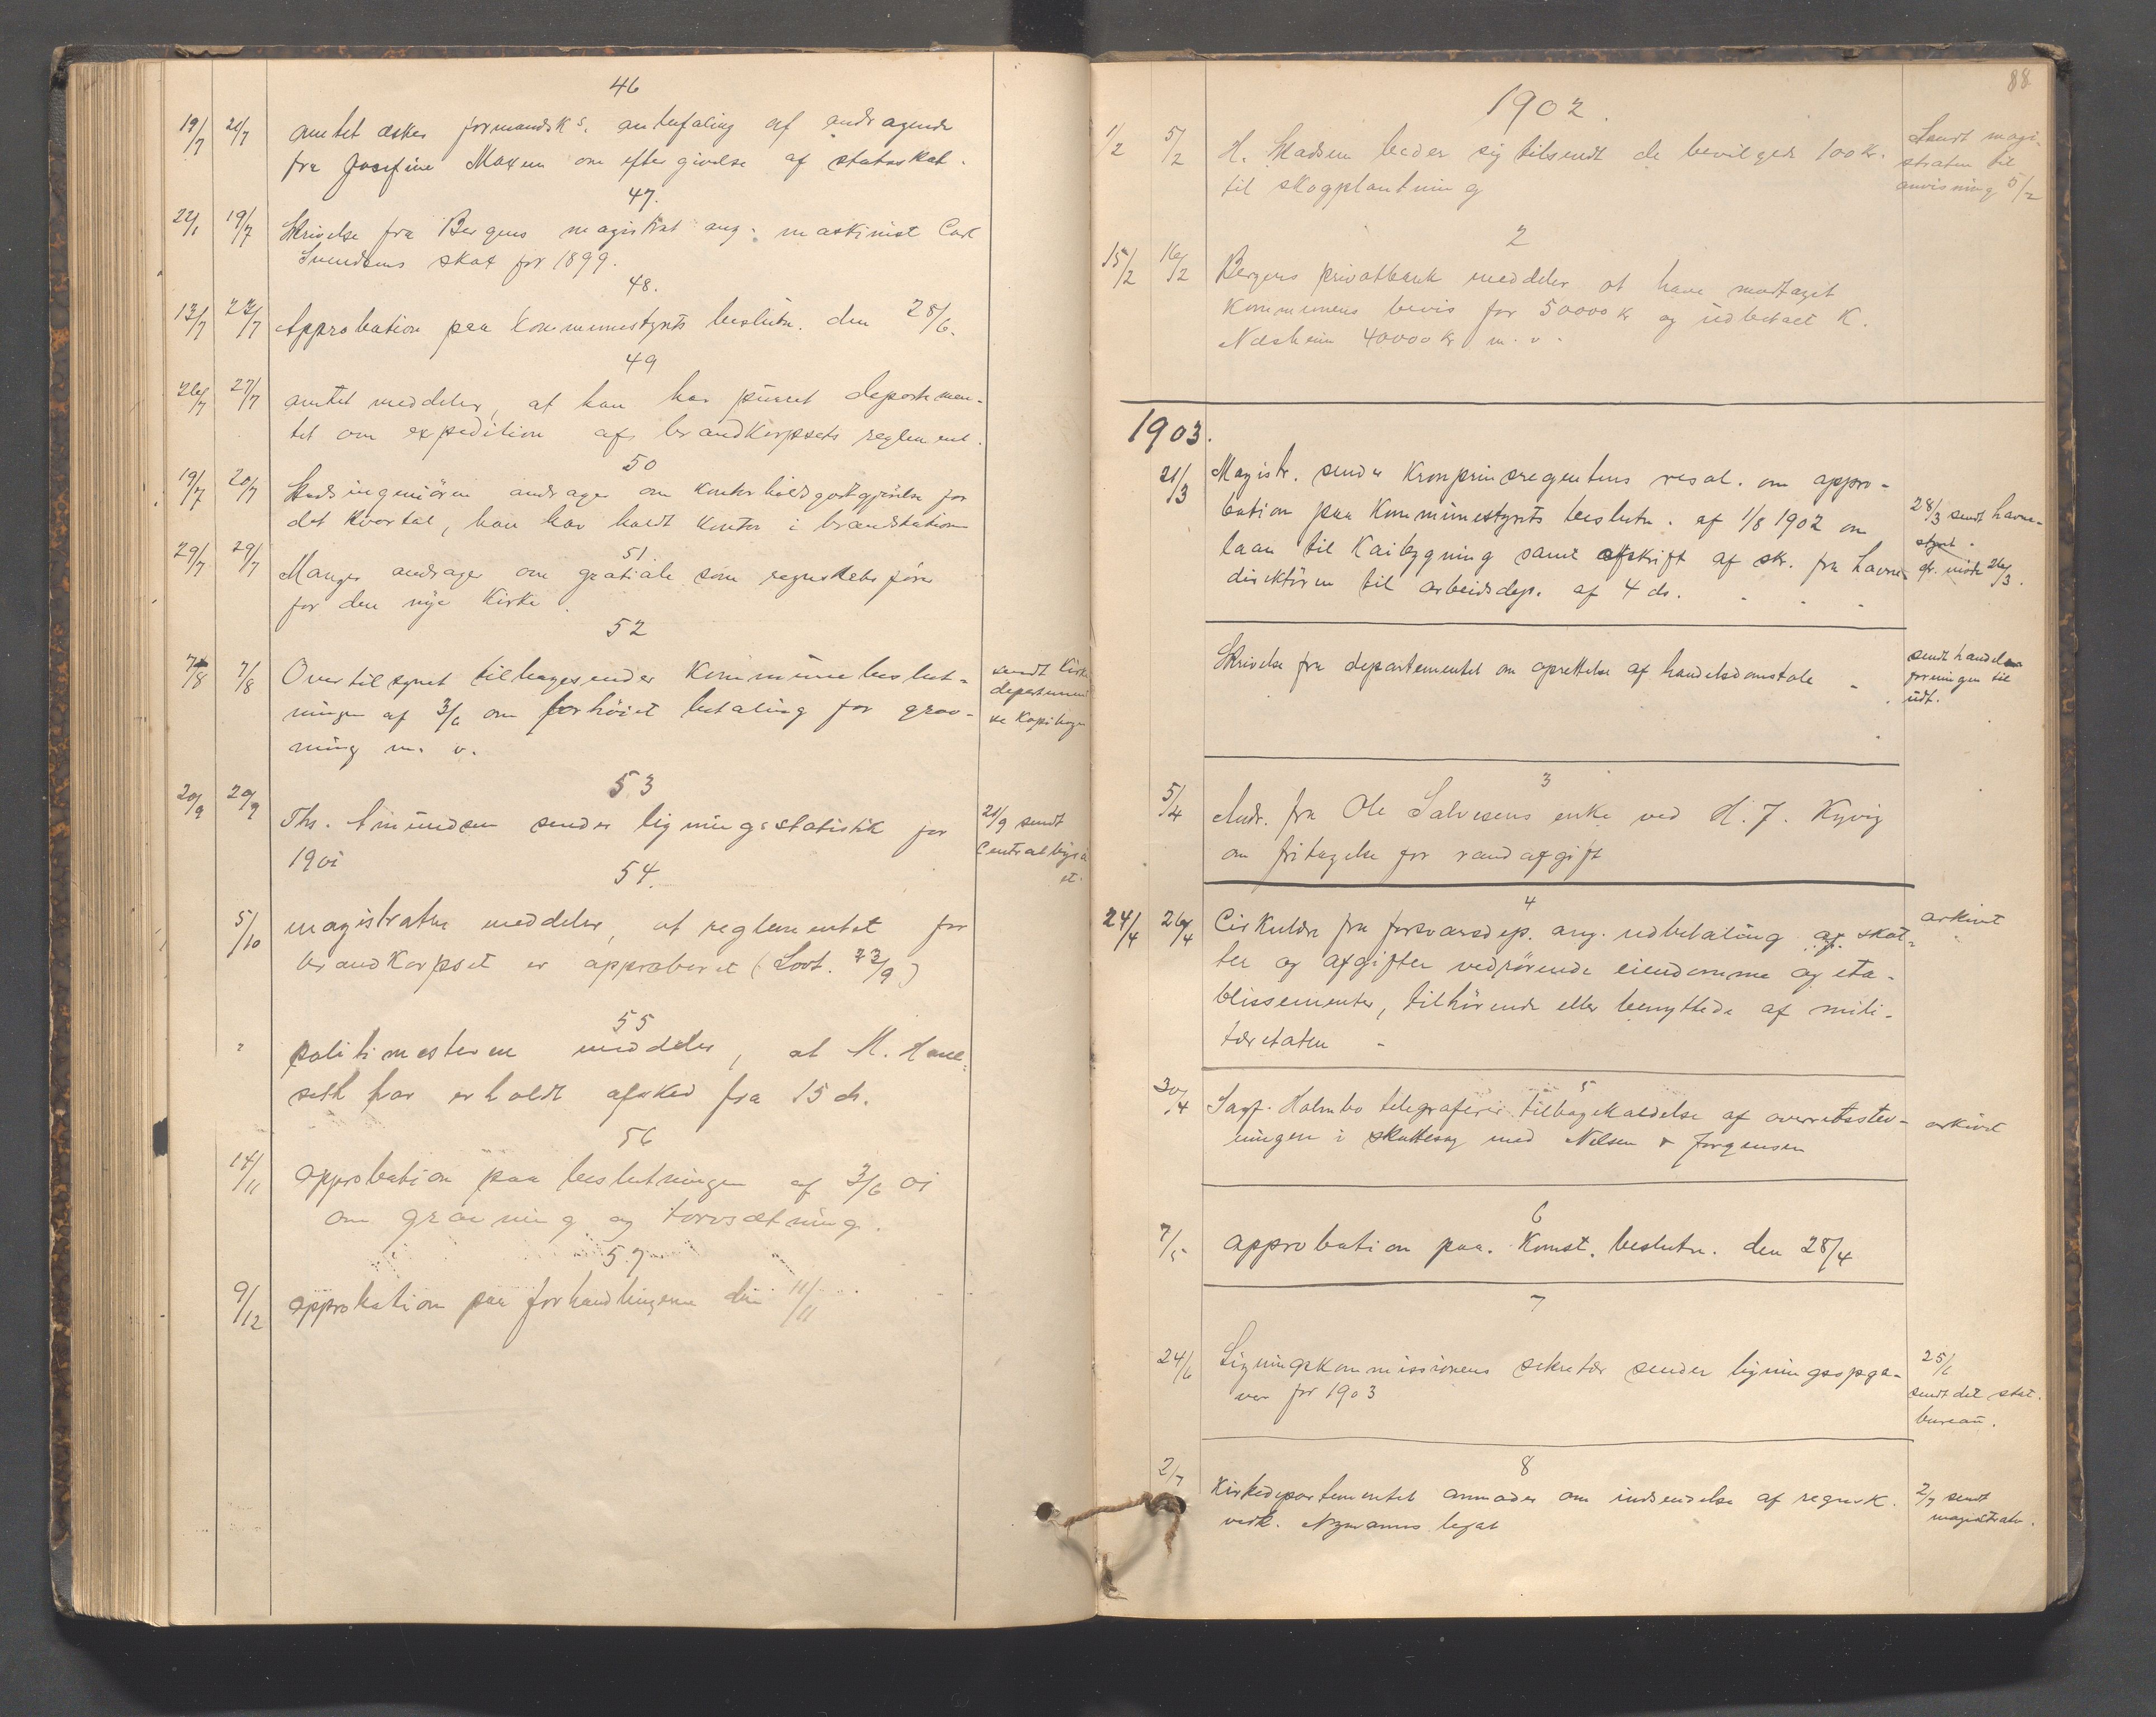 46
19/7 21/7 amtet æsker formandsks. anbefaling af andragende
fra Josefine Maxen om eftergivelse af statsskat.
47.
22/1 19/7 Skrivelse fra Bergens magistrat ang. maskinist Carl
Svendsens skat for 1899.
48.
13/7 22/7 Approbation paa kommunestyrets beslutn. den 28/6.
49
26/7 27/7 amtet meddeler, at han har purret departemen-
tet om expedition af brandkorpsets reglement.
50
19/7 20/7 Stadsingeniören andrager om kontorholdsgodtgjörelse for
det kvartal, han har holdt kontor i brandstation
51.
29/7 29/7 Manger andrager om gratiale som regnskabsförer
for den nye kirke.
52
7/8 7/8 Overtilsynet tilbagesender kommunebeslut-
ningen af 3/6 om forhöiet betaling for grav-
ning m. v.
sendt Kirke
departemen
se kopibogen
53
20/9 20/9 Ths. Amundsen sender ligningsstatistik for
1901
21/9 sendt
Centralbyrå
et.
54.
5/10 magistraten meddeler, at reglementet for
brandkorpset er approberet (Lovt. 23/9)
55
" politimesteren meddeler, at M. Hane-
seth har erholdt afsked fra 15 ds.
56
14/11 approbation paa beslutningen af 3/6 01
om gravning og torvsætning.
57
9/12 approbation paa forhandlingerne den 11/11
88
1902.
1/2 5/2 H. Madsen beder sig tilsendt de bevilgede 100 kr.
til skogplantning
Sendt magi-
straten til
anvisning 5/2
2
15/2 16/2 Bergens privatbank meddeler at have modtaget
kommunens bevis for 50000 kr og udbetalt K.
Næsheim 40000 kr m. v.
1903.
21/3 Magistr. sender Kronprinsregentens resol. om appro-
bation paa kommunestyrets beslutn. af 1/8 1902 om
laan til Kaibygning samt afskrift af skr. fra havne-
direktören til arbeidsdep. af 4 ds.
28/3 sendt havne-
styret.
cfr. möde 26/3.
Skrivelse fra departementet om oprettelse af handelsdomstole
sendt handels-
foreningen til
udt.
3
5/4 Andr. fra Ole Salvesens enke ved H. J. Kyvig
om fritagelse for vandafgift
4
24/4 26/4 Cirkulær fra forsvarsdep. ang. udbetaling af skat-
ter og afgifter vedrörende eiendomme og eta-
blissementer, tilhörende eller benyttede af mili-
tæretaten
arkivet
5
30/4 Sagf. Holmbo telegraferer tilbagekaldelse af overretsstev-
ningen i skattesag med Nilsen & Jorgensen
arkivet
6
7/5 approbation paa Komst. beslutn. den 28/4
7
24/6 Ligningskommissionens sekretær sender ligningsopga-
ver for 1903
25/6
sendt det stat.
bureau.
8
2/7 Kirkedepartementet anmoder om indsendelse af regnsk.
vedk. Nymanns legat
2/7 sendt
magistraten.